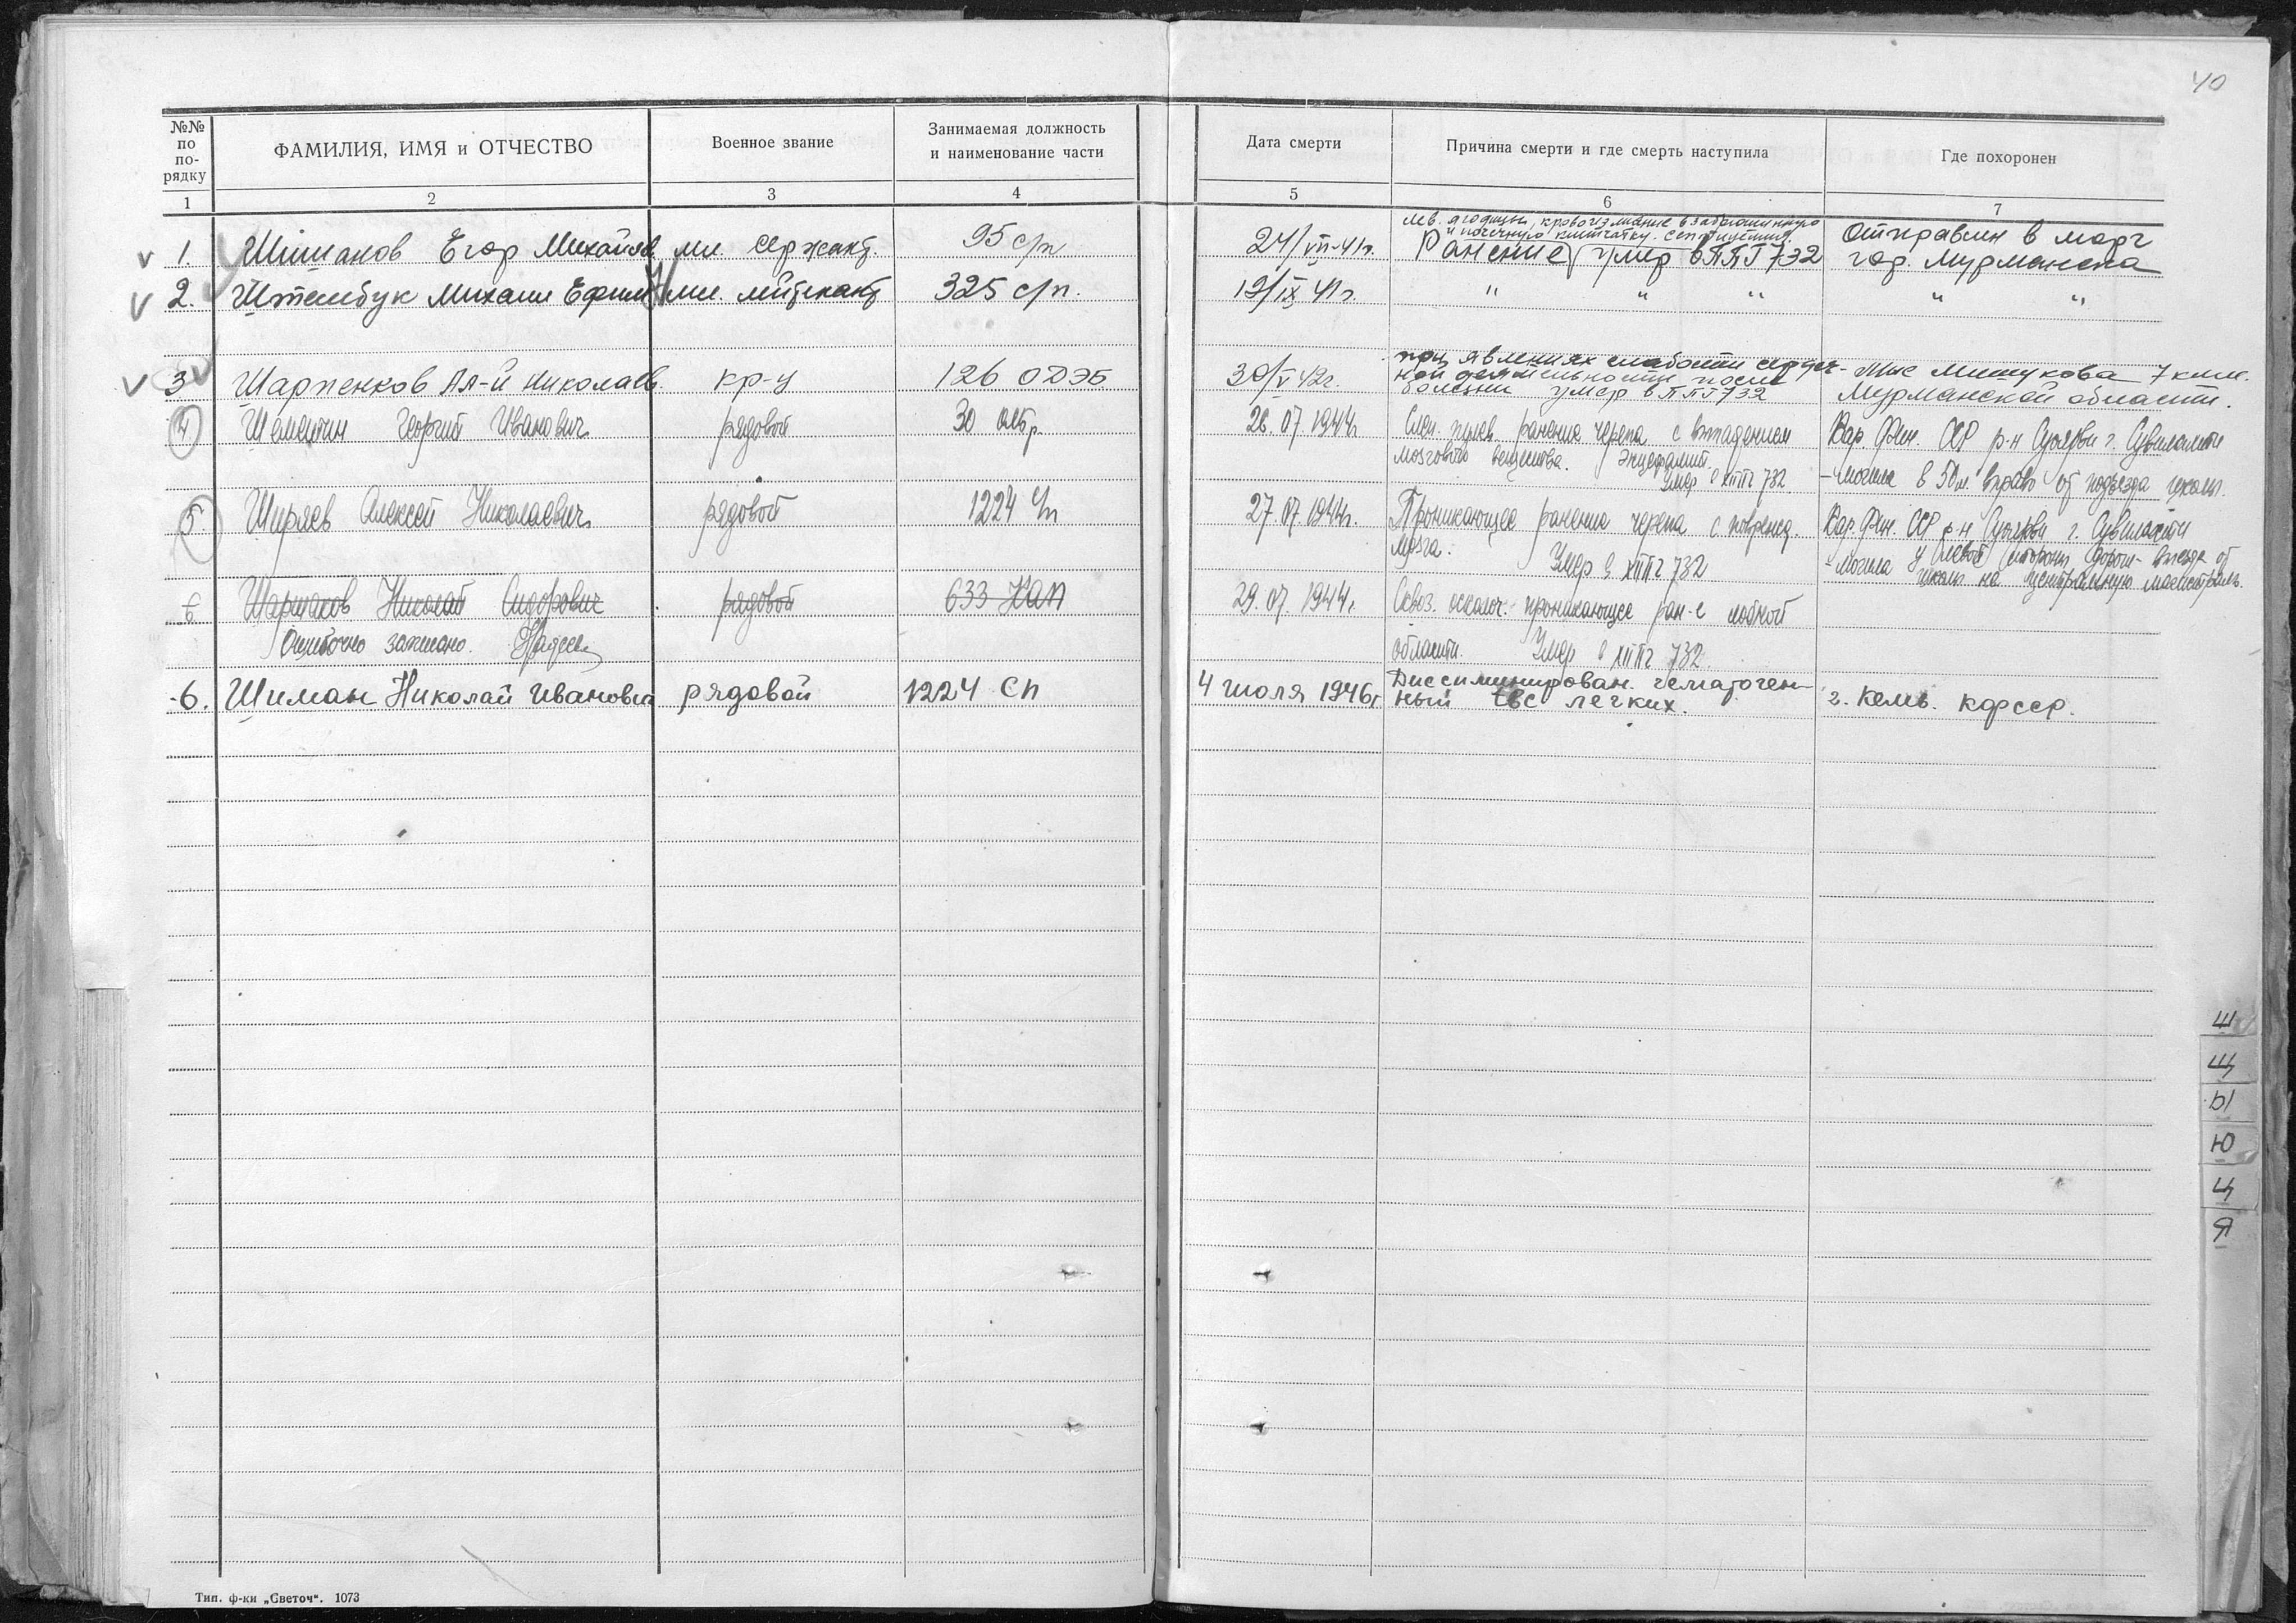 40
№№ по по-рядку
ФАМИЛИЯ, ИМЯ и ОТЧЕСТВО
Военное звание
Занимаемая должность и наименование части
Дата смерти
Причина смерти и где смерть наступила
Где похоронен
1 2 3 4 5 6 7
лев. ягодицы, кровоизлияние в забрюшинную
и почечную клетчатку.
1. Шишанов Егор Михайлов мл. сержант. 95 с/п 24/VII-41г. Ранение умер в ППГ 732 Отправлен в морг
гор. Мурманска
2. Штейбук Михаил Ефим мл. лейтенант 325 с/п. 19/IX 41г. " " " " "
при явлениях слабости сердеч-
3 Шарпенков Ал-й Николаев. кр-ц 126 ОДЭБ 30/V 42г. ной деятельности после Мыс Мишукова 7 клм.
болезни умер в ППГ 732 Мурманской области.
4 Шеметин Георгий Иванович рядовой 30 олбр. 26.07.1944г. Слеп. пулев. ранение черепа с выпадением Кар. Фин. ССР р-н Суоярви г. Сувилахти
мозгового вещества. Энцефалит. - могила в 50м. вправо от подъезда школы.
Умер в ХППГ 732.
5. Ширяев Алексей Николаевич рядовой 1224 с/п 27.07.1944г. Проникающее ранение черепа с поврежд. Кар. Фин. ССР р-н Суоярви г. Сувилахти
мозга. Умер в ХППГ 732 - могила у левой стороны дороги - въезда от
школы на центральную магистраль.
6 Шаршаков Николай Сидорович рядовой 633 НАП 29.07.1944г. Сквоз. осколоч. проникающее ран-е лобной
Ошибочно записано. области. Умер в ХППГ 732.
6. Шиман Николай Иванович рядовой 1224 СП 4 июля 1946г Диссеминирован. гематоген-
ный tbc легких. г. Кемь. КФССР.
Ш
Щ
Ы
Ю
Ц
Я
Тип. ф-ки „Светоч“. 1073